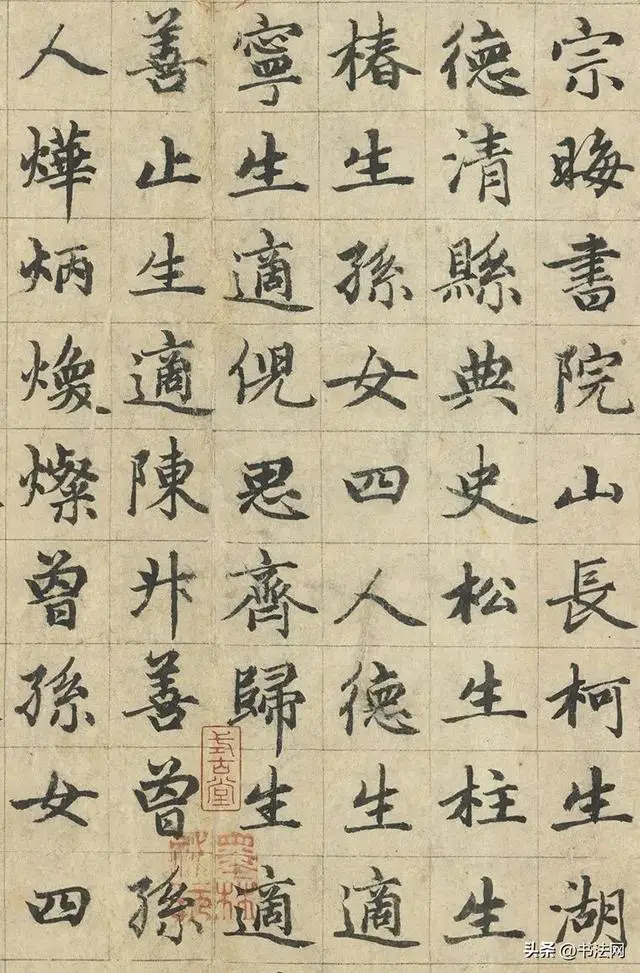 宗晦書院山長柯生湖
德清縣典史松生柱生
椿生孫女四人德生適
寧生適倪思齊歸生適
善止生適陳善曾孫
人燁炳煥燦曾孫女四
式古堂
墨林秘玩
头条 @书法网